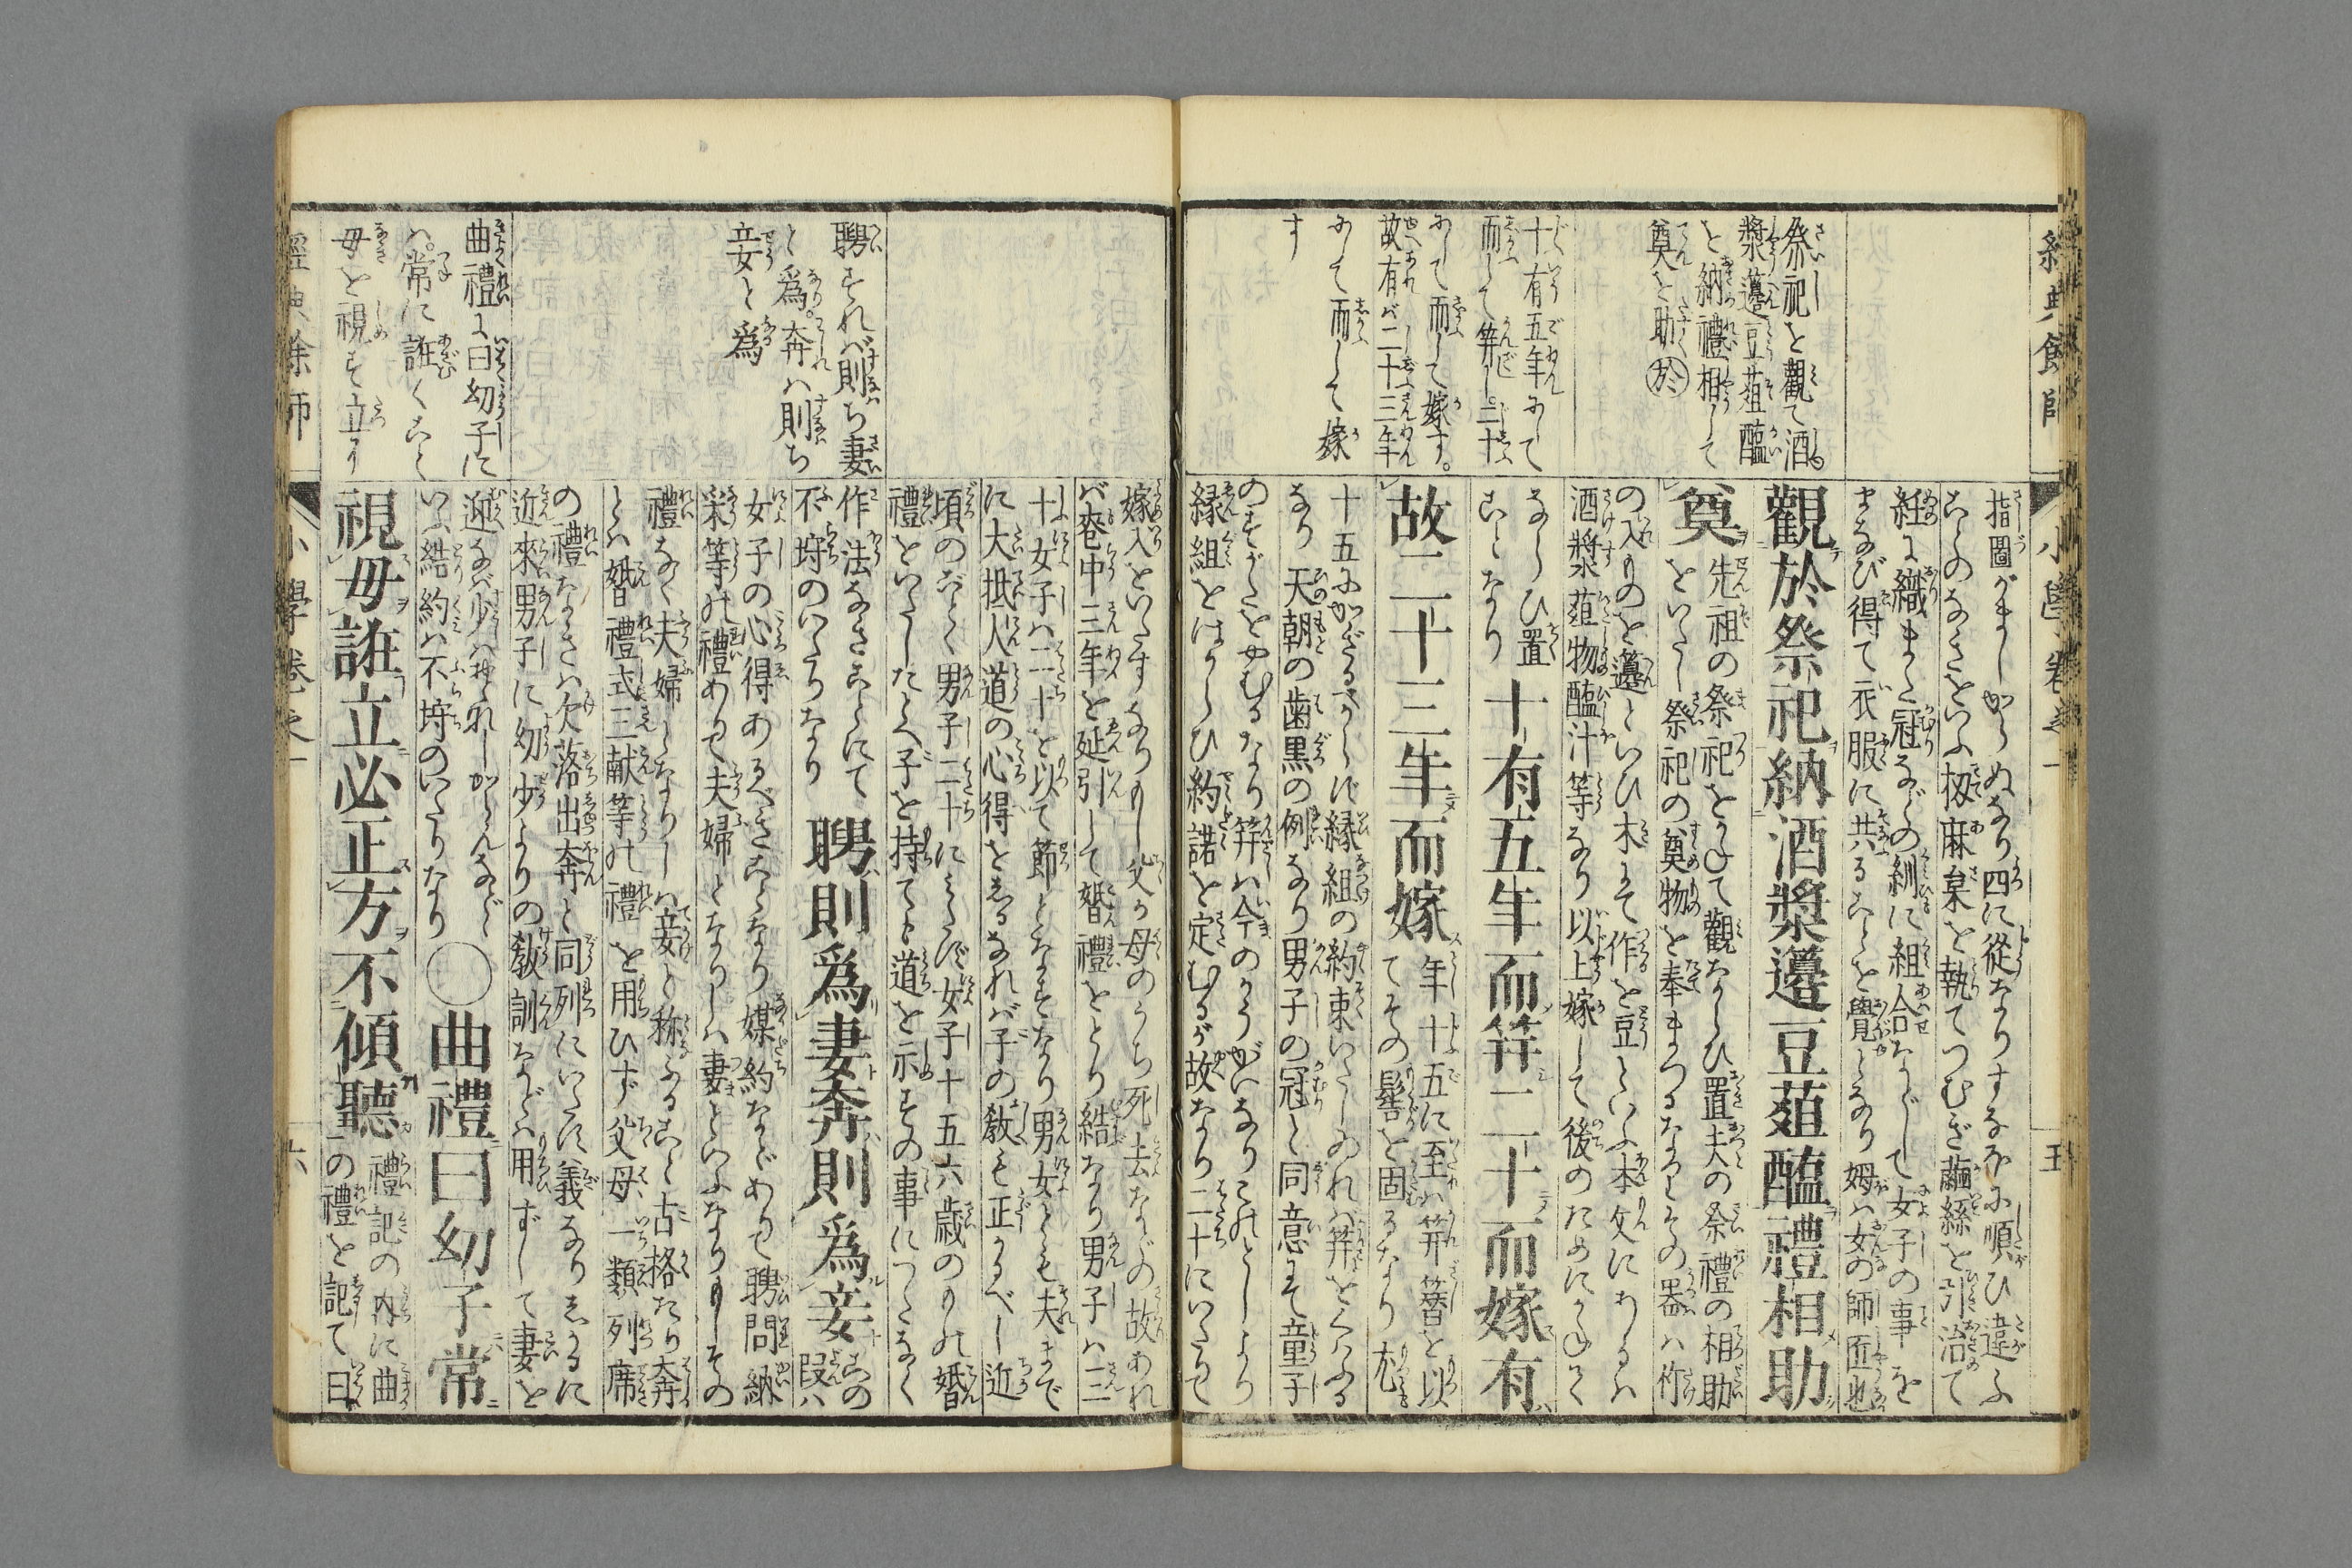 經典餘師
小學卷之一
五
祭祀を觀て酒
漿籩豆葅醢
を納禮相して
奠を助 於
十有五年にて
而して筓し二十に
して而して嫁す。
故有バ二十三年
にして而して嫁
す
指圖がましからぬなり四に從なりすなほに順ひ違ふ
ことのなきをいふ扨麻枲を執てつむぎ繭絲を引治て
紝に織また冠などの紃に組合などして女子の事を
まなび得て衣服に共ることを覺となり姆ハ女の師匠也
觀於祭祀納酒漿籩豆葅醢禮相助
奠
先祖の祭祀をかねて觀ならひ置夫の祭禮の相助
をいたし祭祀の奠物を奉まつるなりその器ハ竹
の入ものを籩といひ木にて作を豆といふ本文にあるハ
酒漿葅物醢汁等なり以上嫁して後のためにかねてく
ならひ置
ことなり
十有五年而筓二十而嫁有
故二十三年而嫁
年十五に至ハ筓簪を以
てその髻を固るなり尤
十五にかぎるべからず縁組の約束いたしあれハ筓をくハふる
なり天朝の歯黒の例なり男子の冠と同意にて童子
のすがたをやむるなり筓ハ今のかうがいなりこのとしより
縁組をはからひ約諾を定むるが故なり二十にいたりて
嫁入をいたすなりもし父か母のうち死去などの故あれ
バ喪中三年を延引して婚禮をとり結なり男子ハ三
十女子ハ二十を以て節となすなり男女とも夫まで
に大抵人道の心得をえるなれバ子の教も正かるべし近
頃のごとく男子二十にみたず女子十五六歳のもの婚
禮をいたしたとへ子を持ても道を示すその事につたなく
作法なきことにて
不埒のいたりなり
聘則爲妻奔則爲妾
この
段ハ
女子の心得あるべきことなり媒約などありて聘問納
采等の禮ありて夫婦となりしハ妻といふなりもしその
禮なく夫婦となりしハ妾と称ふること古格たり奔
とハ婚禮式三献等の禮を用ひず父母一類列席
の禮なきハ欠落出奔と同列にいたす義なりしかるに
近來男子に幼少よりの教訓などハ用ずして妻を
迎なバ少ハ
いふ結約ハ不埒のいたりなり
○曲禮曰幼子常
視毋誑立必正方不傾聽
禮記の内に曲
の禮を記て曰
聘すれバ則ち妻
と爲。奔ハ則ち
妾と爲
曲禮に曰幼子に
ハ。常に誑くこと
毋を視す立に
經典餘師
小學卷之一
六